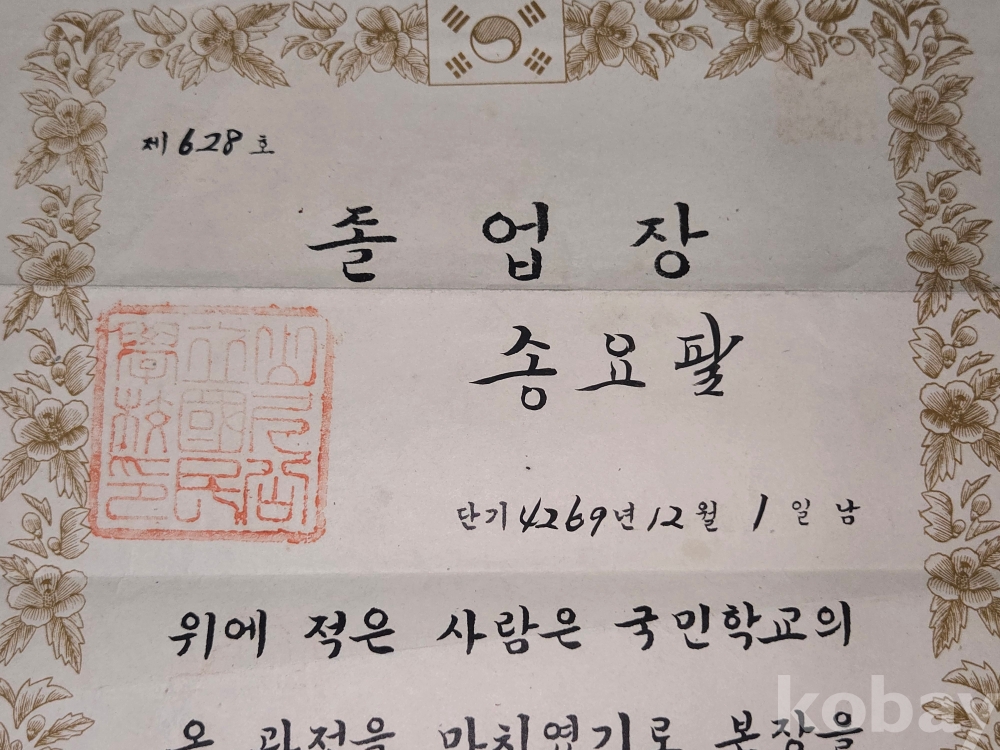 제 628 호
졸 업 장
송 요 팔
단기 4269년 12월 1일 남
위에 적은 사람은 국민학교의
온 과정을 마치였기로 본장을
kobay